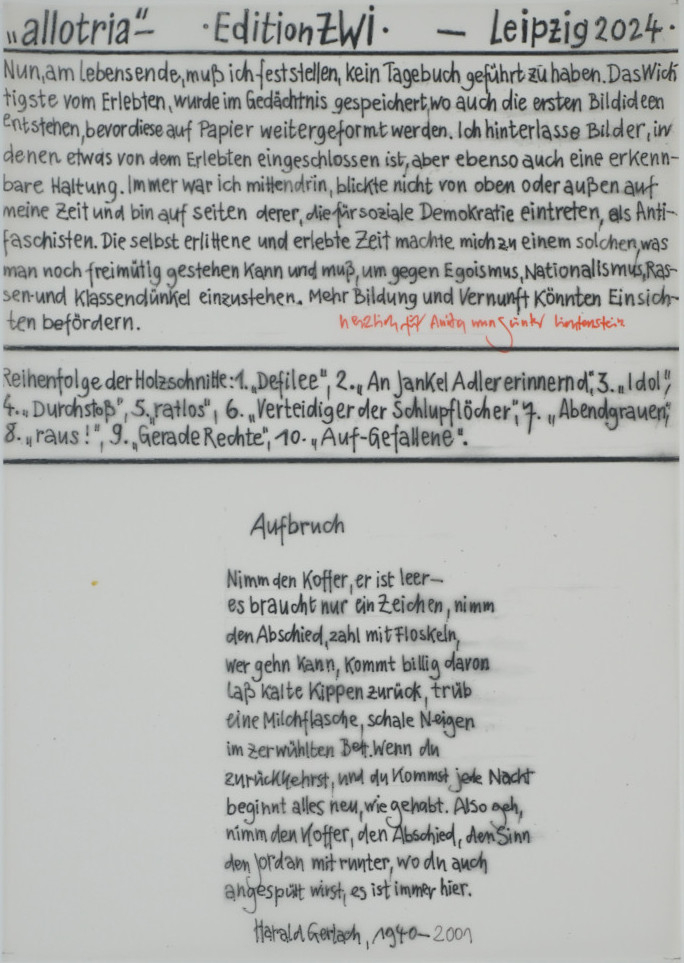 „allotria“– ·Edition ZWi· — Leipzig 2024·
Nun, am Lebensende, muß ich feststellen, kein Tagebuch geführt zu haben. Das Wich
tigste vom Erlebten, wurde im Gedächtnis gespeichert, wo auch die ersten Bildideen
entstehen, bevor diese auf Papier weitergeformt werden. Ich hinterlasse Bilder, in
denen etwas von dem Erlebten eingeschlossen ist, aber ebenso auch eine erkenn-
bare Haltung. Immer war ich mittendrin, blickte nicht von oben oder außen auf
meine Zeit und bin auf seiten derer, die für soziale Demokratie eintreten, als Anti-
faschisten. Die selbst erlittene und erlebte Zeit machte mich zu einem solchen, was
man noch freimütig gestehen kann und muß, um gegen Egoismus, Nationalismus, Ras-
sen- und Klassendünkel einzustehen. Mehr Bildung und Vernunft könnten Einsich-
ten befördern. herzlich für Anita
Reihenfolge der Holzschnitte: 1. „Defilee“, 2. „An Jankel Adler erinnernd“, 3. „Idol“,
4. „Durchstoß“, 5. „ratlos“, 6. „Verteidiger der Schlupflöcher“, 7. „Abendgrauen“,
8. „raus!“, 9. „Gerade Rechte“, 10. „Auf-Gefallene“.
Aufbruch
Nimm den Koffer, er ist leer—
es braucht nur ein Zeichen, nimm
den Abschied, zahl mit Floskeln,
wer gehn kann, kommt billig davon
laß kalte Kippen zurück, trüb
eine Milchflasche, schale Neigen
im zerwühlten Bett. Wenn du
zurückkehrst, und du kommst jede Nacht
beginnt alles neu, wie gehabt. Also geh,
nimm den Koffer, den Abschied, den Sinn
den Jordan mit runter, wo du auch
angespült wirst, es ist immer hier.
Harald Gerlach, 1940–2001